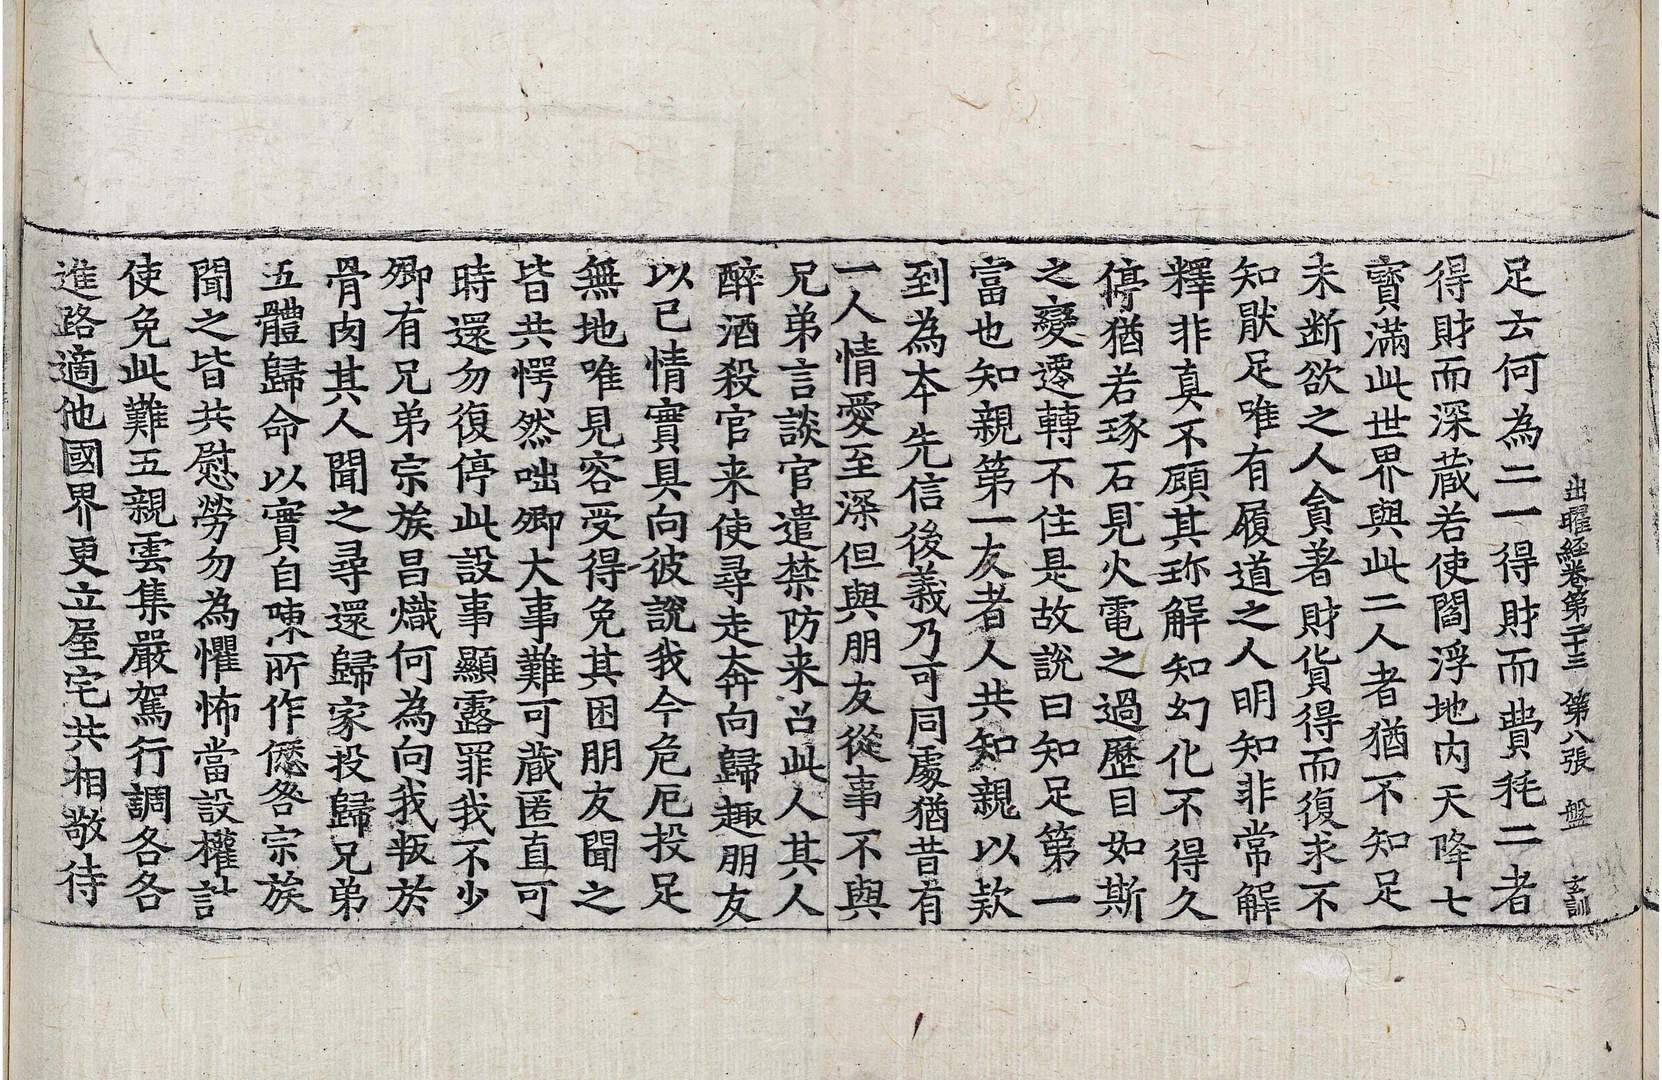 出曜經卷第二十三 第八張 盤 玄訓
足云何為二一得財而費耗二者
得財而深蔵若使閻浮地内天降七
寳滿此世界與此二人者猶不知足
未断欲之人貪著財貨得而復求不
知猒足唯有履道之人明知非常解
釋非真不顧其珎解知幻化不得久
停猶若琢石見火電之過歷目如斯
之變遷轉不住是故說曰知足第一
富也知親第一友者人共知親以款
到為本先信後義乃可同處猶昔有
一人情愛至深但與朋友從事不與
兄弟言談官遣禁防来召此人其人
醉酒殺官来使尋走奔向歸趣朋友
以己情實具向彼說我今危厄投足
無地唯見容受得免其困朋友聞之
皆共愕然咄卿大事難可蔵匿直可
時還勿復停此設事顯露罪我不少
卿有兄弟宗族昌熾何為向我叛於
骨肉其人聞之尋還歸家投歸兄弟
五體歸命以實自陳所作𠎝咎宗族
聞之皆共慰勞勿為懼怖當設權計
使免此難五親雲集嚴駕行調各各
進路適他國界更立屋宅共相敬待